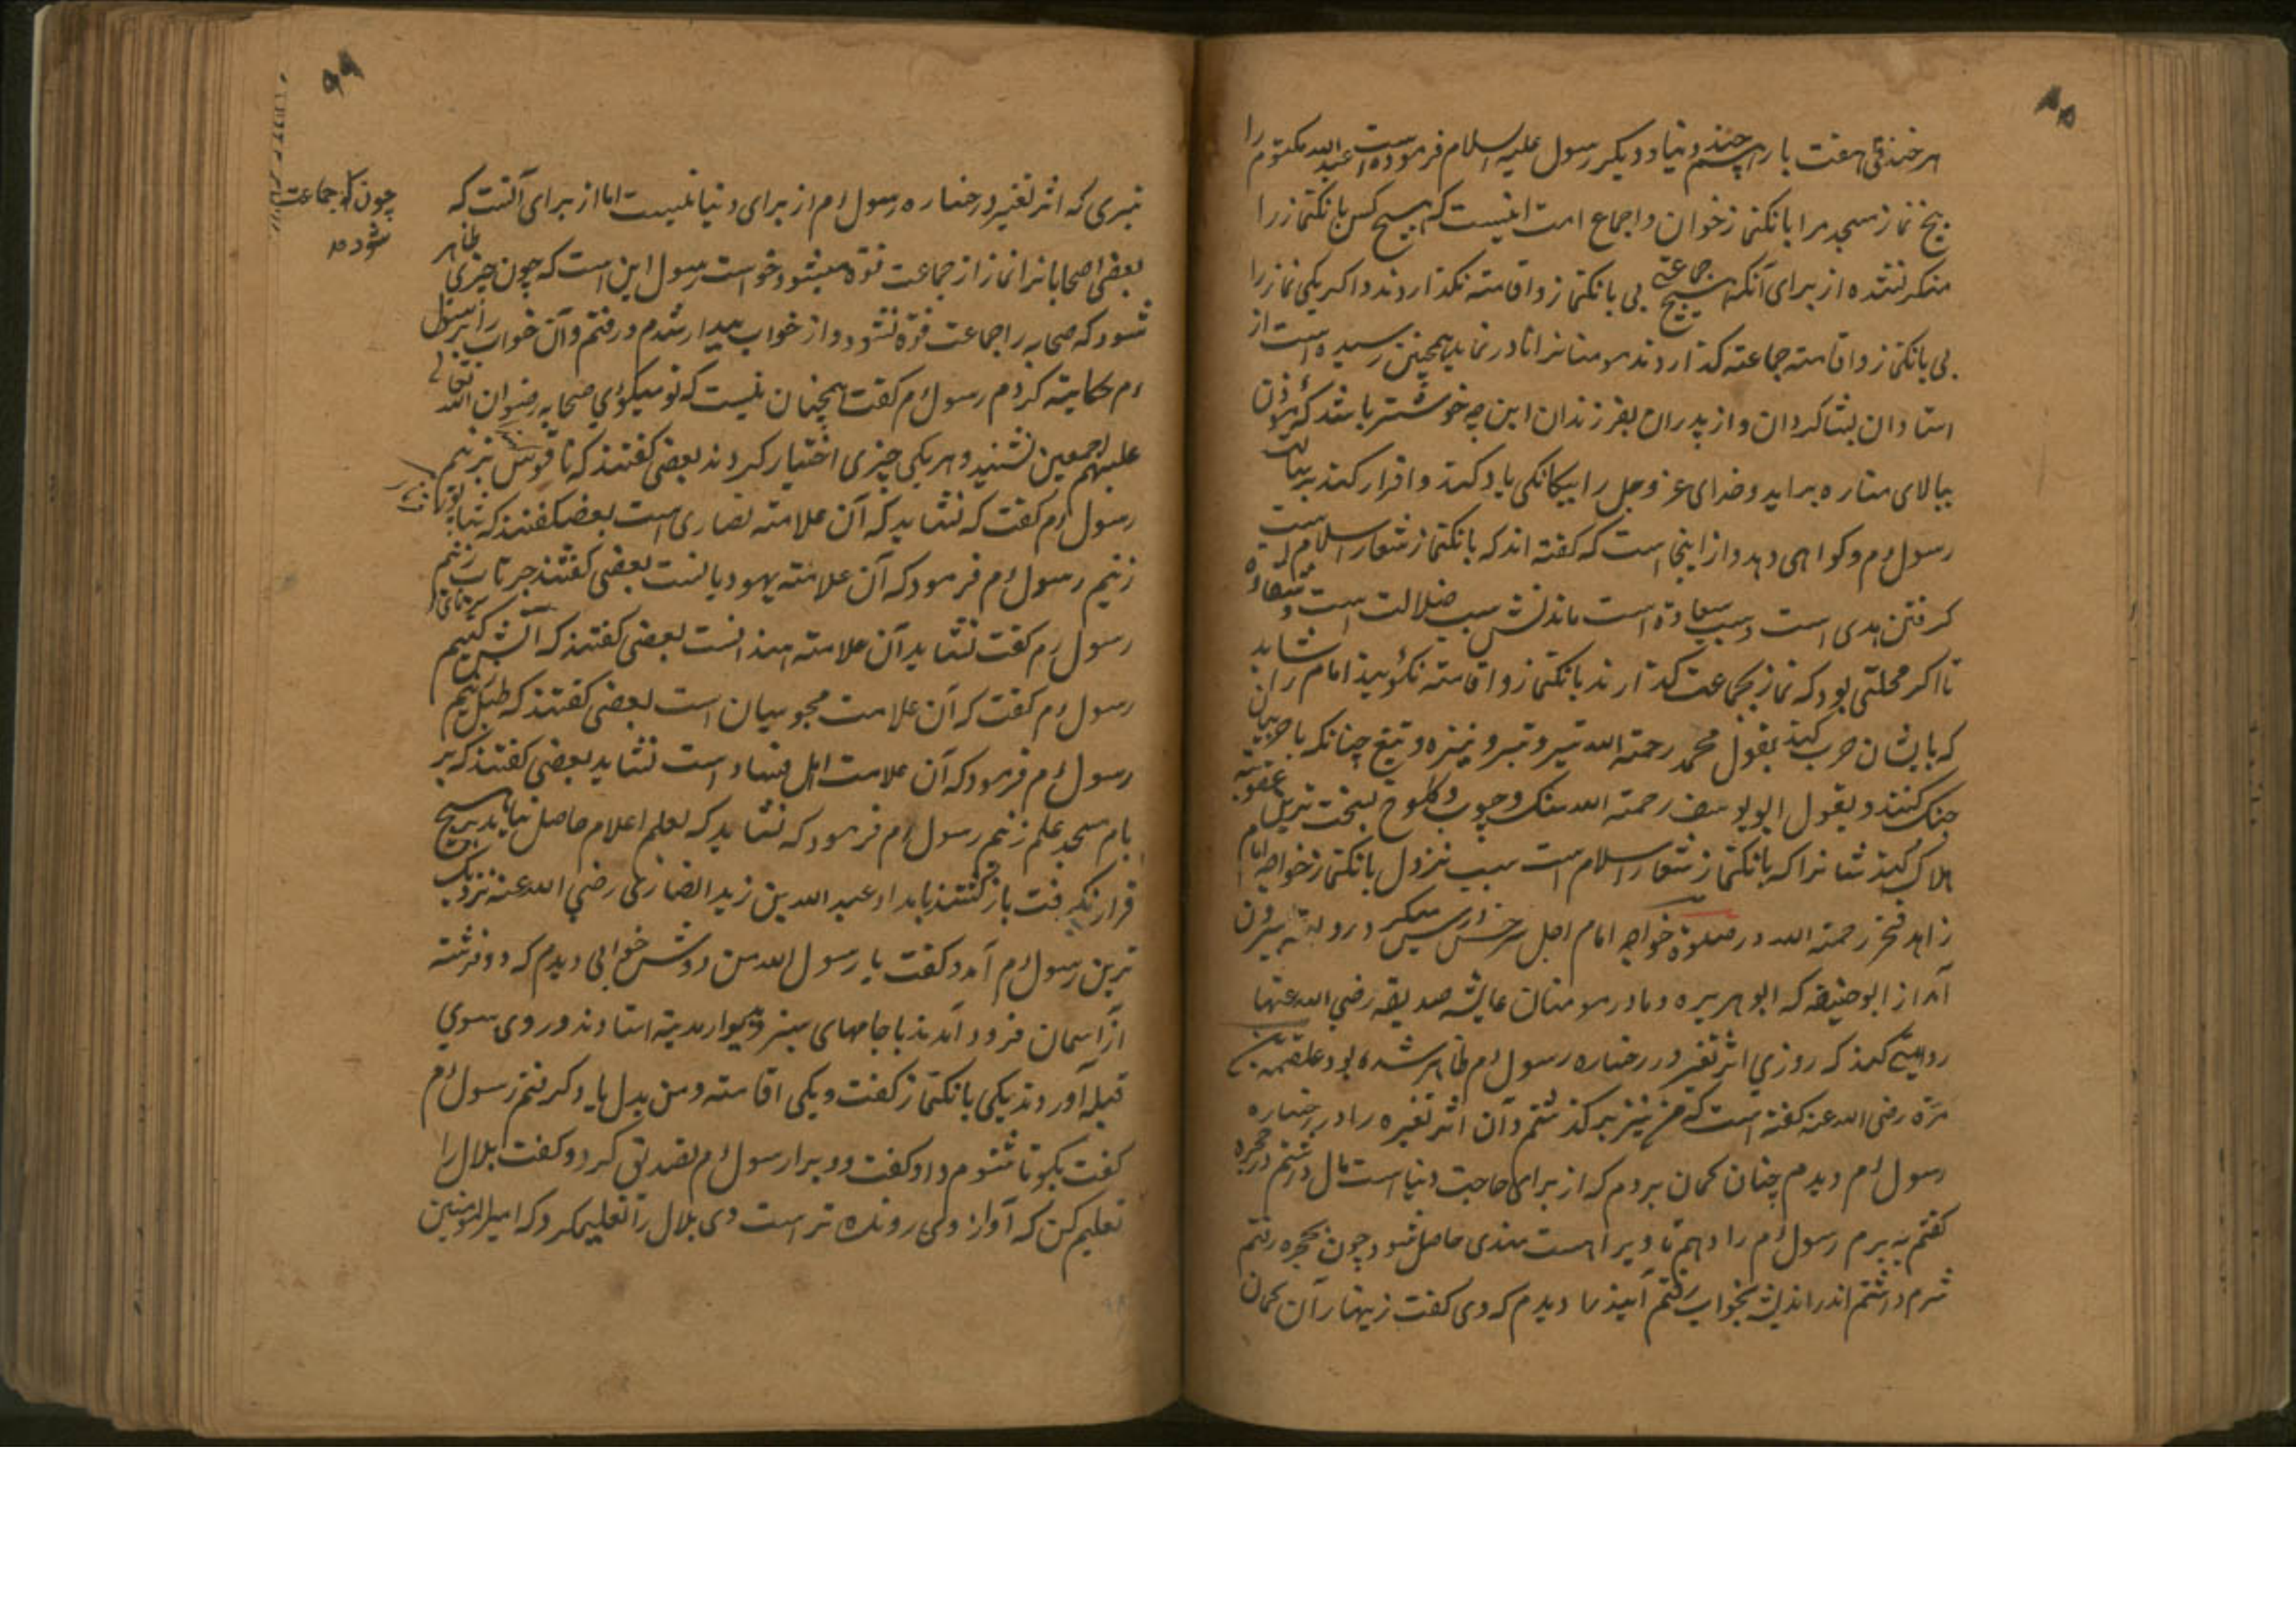 هر خندقی هفت بار چند دنیا و دیگر رسول علیه السلام فرموده است عبدالله مکتوم را
پنج نماز مسجد مرا بانکنماز خوان و اجماع امت اینست که هیچ کس بانکنماز را
منکر نشده از برای آنکه هیچ جماعتی بی بانکنماز و اقامته نکذاردند و اکر یکی نماز را
بی بانکنماز و اقامته جماعته کذاردند مومنانرا نادر نماید همچنین رسیده است از
استادان بشاکردان و از پدران بفرزندان این چه خوشتر باشد که مؤذن
ببالای مناره براید و خدای عز و جل را بیکانکی یاد کند و اقرار کند برسالت
رسول ءم و کواهی دهد و از اینجا است که کفته اند که بانکنماز شعار اسلام است
کرفتن هدی است و سبب سعادة است ماندنش سبب ضلالت است و شقاوة
تا اکر محلتی بود که نماز بجماعت کذارند بانکنماز و اقامته نکویند امام را شاید
که با ایشان حرب کند بقول محمد رحمة الله تیر و تبر و نیزه و تیغ چنانکه با حربیان
جنک کنند و بقول ابو یوسف رحمة الله سنک و چوب و کلوخ بسخت ترین عقوبته
هلاک کند شانرا که بانکنماز شعار اسلام است سبب نزول بانکنماز خواجه امام
زاهد فخر رحمة الله در صلوة خواجه امام اجل سرخسی
آمد از ابو حنیفه که ابو هریره و مادر مومنان عایشه صدیقه رضی الله عنها
روایت کند که روزی اثر تغیر در رخساره رسول ءم ظاهر شده بود علقمه بن
مره رضی الله عنه کفته است که من نیز بر کذشتم و آن اثر تغیره را در رخساره
رسول ءم دیدم چنان کمان بردم که از برای حاجت دنیا است مال داشتم در حجره
کفتم به برم رسول ءم را دهم تا ویرا بست مندی حاصل شود چون بحجره رفتم
شرم داشتم اندر اندیشه بخواب رفتم آینده را دیدم که وی کفت زینهار آن کمان
نبری که اثر تغیر در رخساره رسول ءم از برای دنیا نیست اما از برای آنست که
بعضی اصحابانرا نماز از جماعت فوة میشود و خواست رسول این است که چون چیزی ظاهر
شود که صحابه را جماعت فوة نشود و از خواب بیدار شدم و رفتم و آن خواب را بر رسول
ءم حکایته کردم رسول ءم کفت همچنان نیست که تو میکوئی صحابه رضوان الله تعالی
علیهم اجمعین نشنید و هر یکی چیزی اختیار کردند بعضی کفتند که ناقوس بزنیم
رسول ءم کفت که نشاید که آن علامته نصاری است بعضی کفتند که شاید
زنیم رسول ءم فرمود که آن علامته یهودیانست بعضی کفتند زنیم
رسول ءم کفت نشاید آن علامته است بعضی کفتند که آتش کنیم
رسول ءم کفت که آن علامت مجوسیان است بعضی کفتند که طبل زنیم
رسول ءم فرمود که آن علامت اهل فساد است نشاید بعضی کفتند که بر
بام مسجد علم زنیم رسول ءم فرمود که نشاید که بعلم اعلام حاصل نیاید بر هیچ
قرار نکرفت باز کشتند بامداد عبد الله بن زید انصاری رضی الله عنه نزدیک
ترین رسول ءم آمد و کفت یا رسول الله من دوش خوابی دیدم که دو فرشته
از آسمان فرود آمدند با جامهای سبز و بدیوار مدینه استادند و روی سوی
قبله آوردند یکی بانکنماز کفت و یکی اقامته و من بدل یاد کرفتم رسول ءم
کفت بکو تا شنوم و او کفت و ویرا رسول ءم تصدیق کرد و کفت بلال را
تعلیم کن که آواز وی رونده تر است وی بلال را تعلیم کرد که امیر المومنین
چون که جماعت
شود